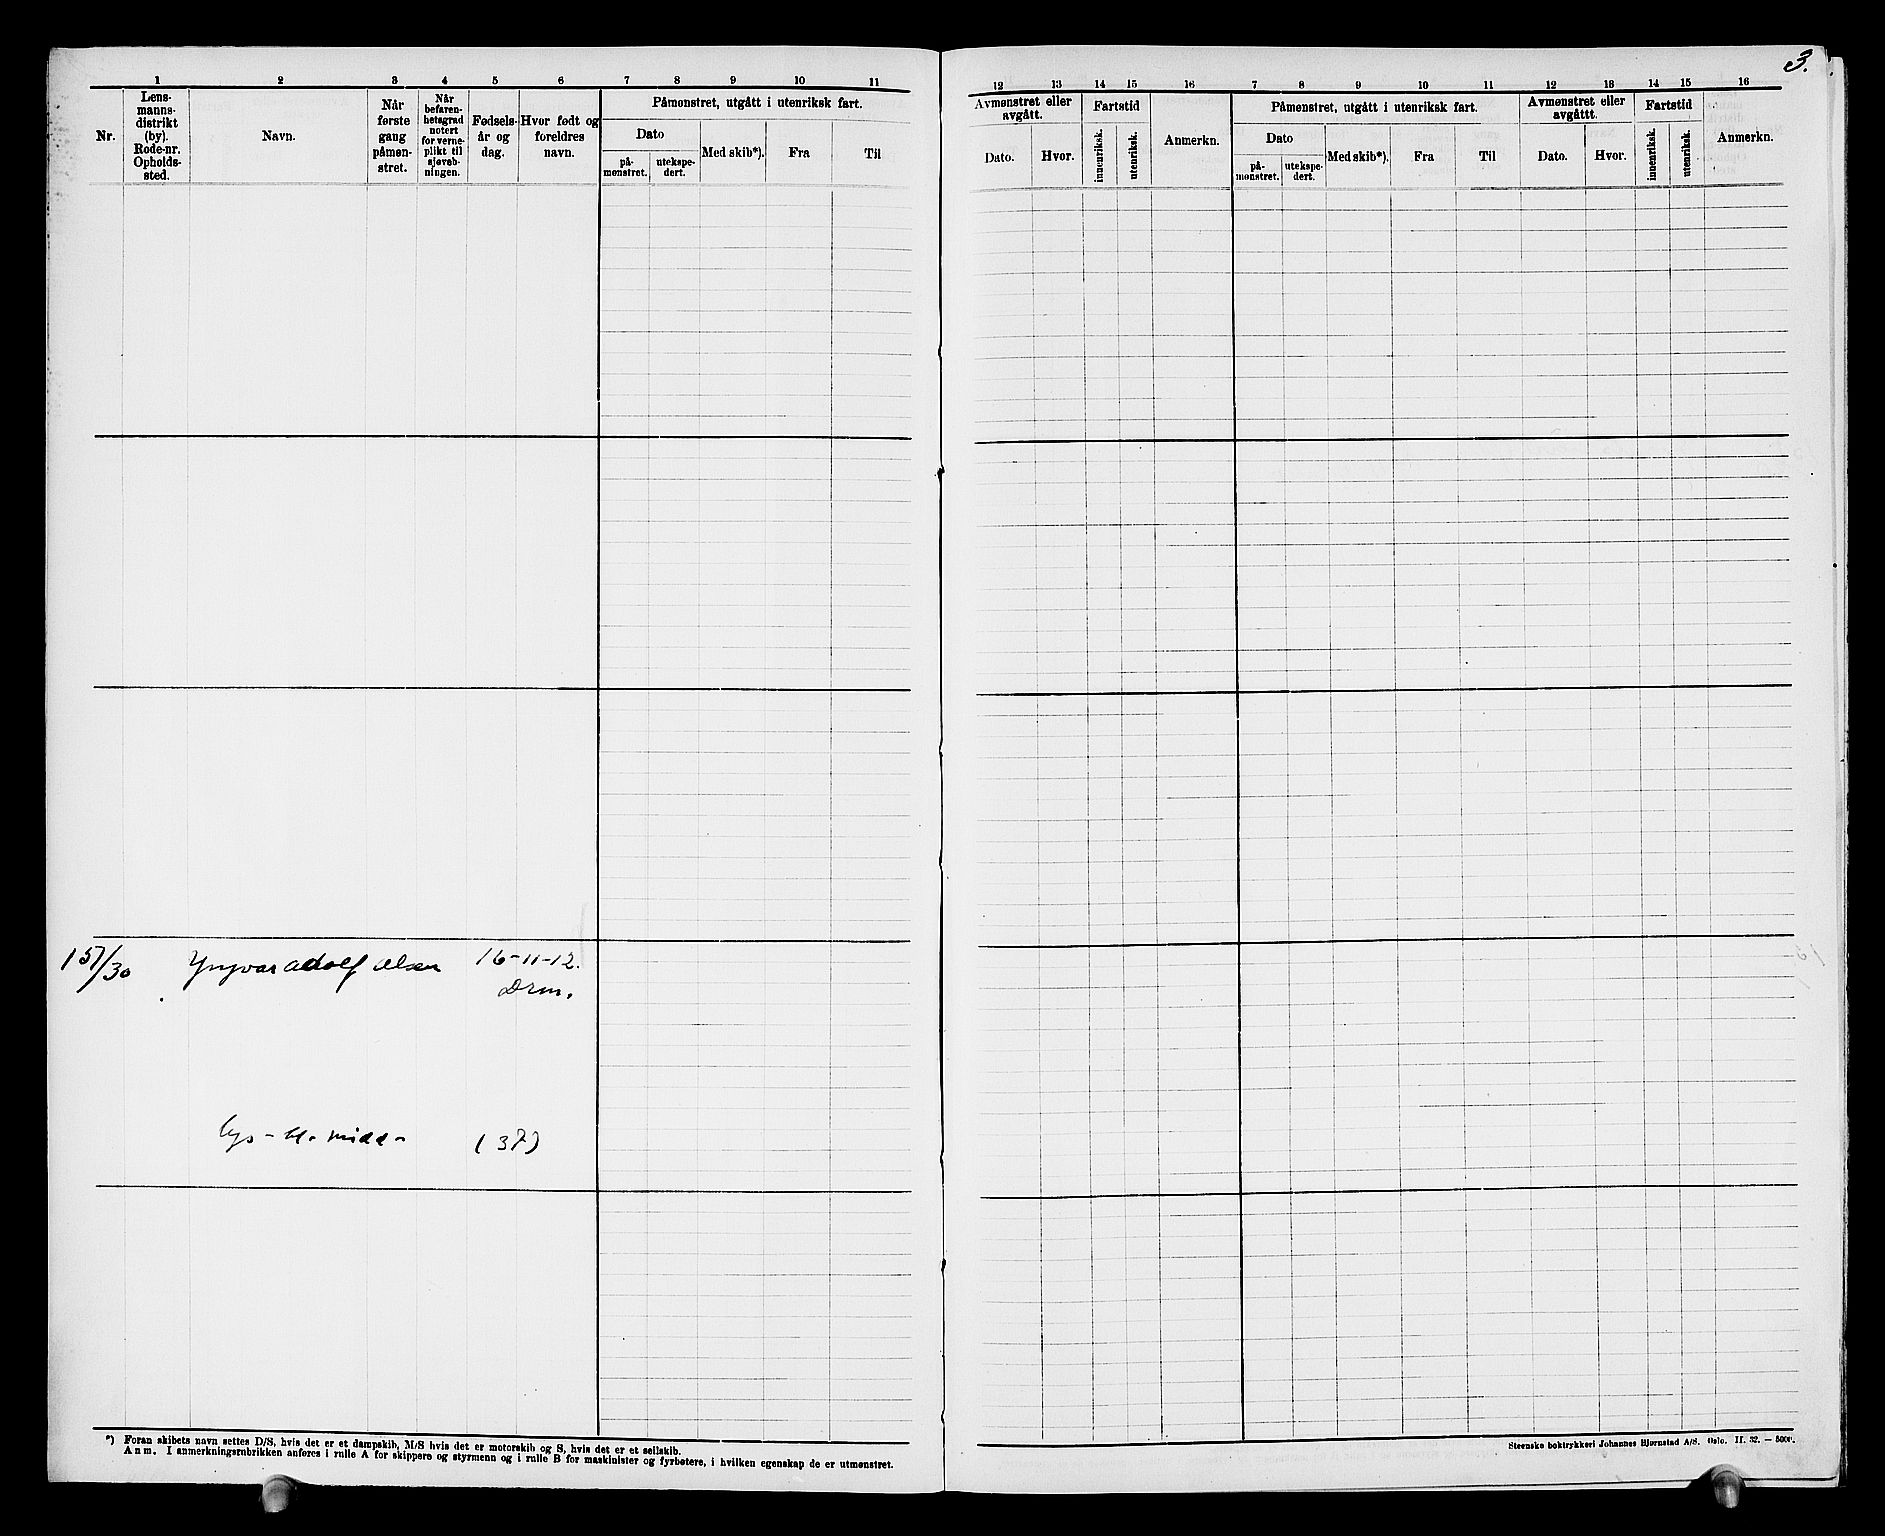 3.
1 2 3 4 5 6 7 8 9 10 11
Nr.
Lens-
manns-
distrikt
(by).
Rode-nr.
Opholds-
sted.
Navn.
Når
første
gang
påmøn-
stret.
Når
befaren-
hetsgrad
notert
for verne-
plikt til
sjøveb-
ningen.
Fødsels-
år og
dag.
Hvor født og
foreldres
navn.
Påmønstret, utgått i utenriksk fart.
Dato
på-
mønstret.
utekspe-
dert.
Med skib*).
Fra
Til
12 13 14 15 16 7 8 9 10 11 12 13 14 15 16
Avmønstret eller
avgått.
Dato.
Hvor.
Fartstid
innenriksk.
utenriksk.
Anmerkn.
Påmønstret, utgått i utenriksk fart.
Dato
på-
mønstret.
utekspe-
dert.
Med skib*).
Fra
Til
Avmønstret eller
avgåttt.
Dato.
Hvor.
Fartstid
innenriksk.
utenriksk.
Anmerkn.
157/30 Yngvar Adolf Olsen 16-11-12.
Drm.
(37)
*) Foran skibets navn settes D/S, hvis det er et dampskib, M/S hvis det er motorskib og S, hvis det er et seilskib.
Anm. I anmerkningsrubrikken anføres i rulle A for skippere og styrmenn og i rulle B for maskinister og fyrbøtere, i hvilken egenskap de er utmønstret.
Steenske boktrykkeri Johannes Bjørnstad A/S. Oslo. II. 32. — 5000.